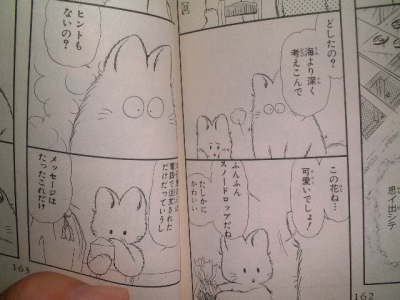 どしたの?
海より深く
考えこんで
この花ね…
可愛いでしょ!
ふんふん
スノードロップだね
たしかに
かわいい
162
ヒントも
ないの?
電話で注文された
だけだっていうし
メッセージは
たったこれだけ
163
思イ出シテ